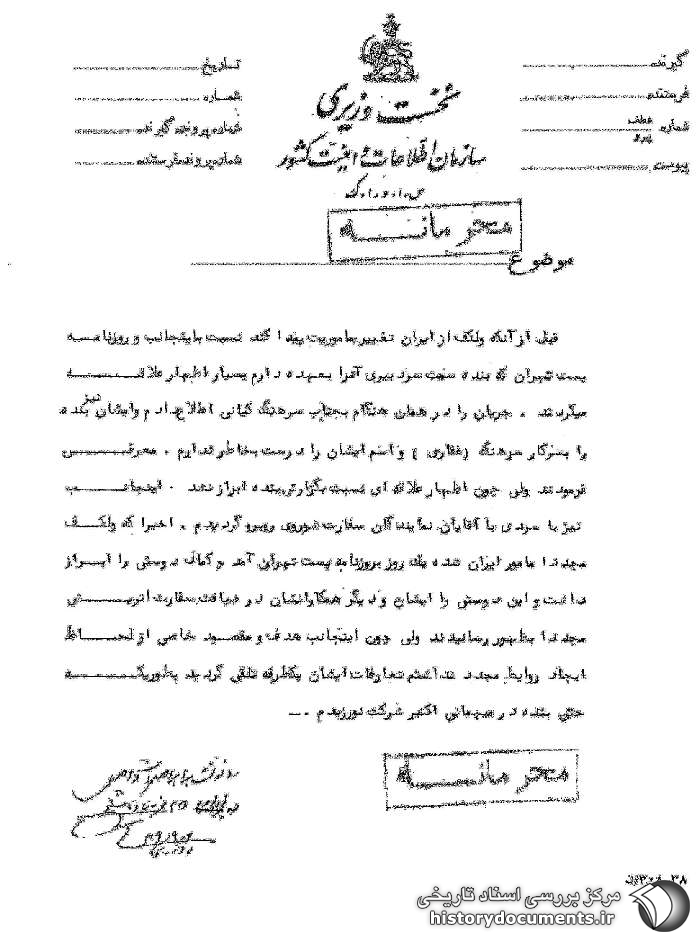 گیرنده
فرستنده
شماره عطف پیرو
پیوست
نخست وزیری
سازمان اطلاعات و امنیت کشور
س.ا.و.ا.ک
تاریخ
شماره
شماره پرونده گیرنده
شماره پرونده فرستنده
محرمانــــه
موضوع
قبل از آنکه ولکف از ایران تغییر ماموریت پیدا کند نسبت باینجانب و روزنامـــه
پست تهران که بنده سمت سردبیری آنرا بعهده دارم بسیار اظهار علاقـــــه
میکردند . جریان را در همان هنگام بجناب سرهنگ کیانی اطلاع دادم وایشان نیز بنده
را بسرکار سرهنگ (غفاری ) و اسم ایشان را درست بخاطر ندارم . معرفـــی
فرمودند ولی چون اظهار علاقه ای نسبت بگزارش بنده ابراز نشد . اینجانـــب
نیز با سردی با آقایان نمایندگان سفارت شوروی روبرو گردیدم . اخیرا که ولکـــف
مجددا مامور ایران شده یک روز بروزنامه پست تهران آمد و کمال دوستی را ابـــراز
داشت و این دوستی را ایشان و دیگر همکارانشان در ضیافت سفارت اتریـــش
مجددا بظهور رسانیدند ولی چون اینجانب هدف و مقصود خاصی از لحـــاظ
ایجاد روابط مجدد نداشتم تعارفات ایشان یکطرفه تلقی گردید بطوریکـــــه
حتی بنده در میهمانی اکتبر شرکت نورزیدم . ــ
محرمانــــه
مرکز بررسی اسناد تاریخی
historydocuments.ir